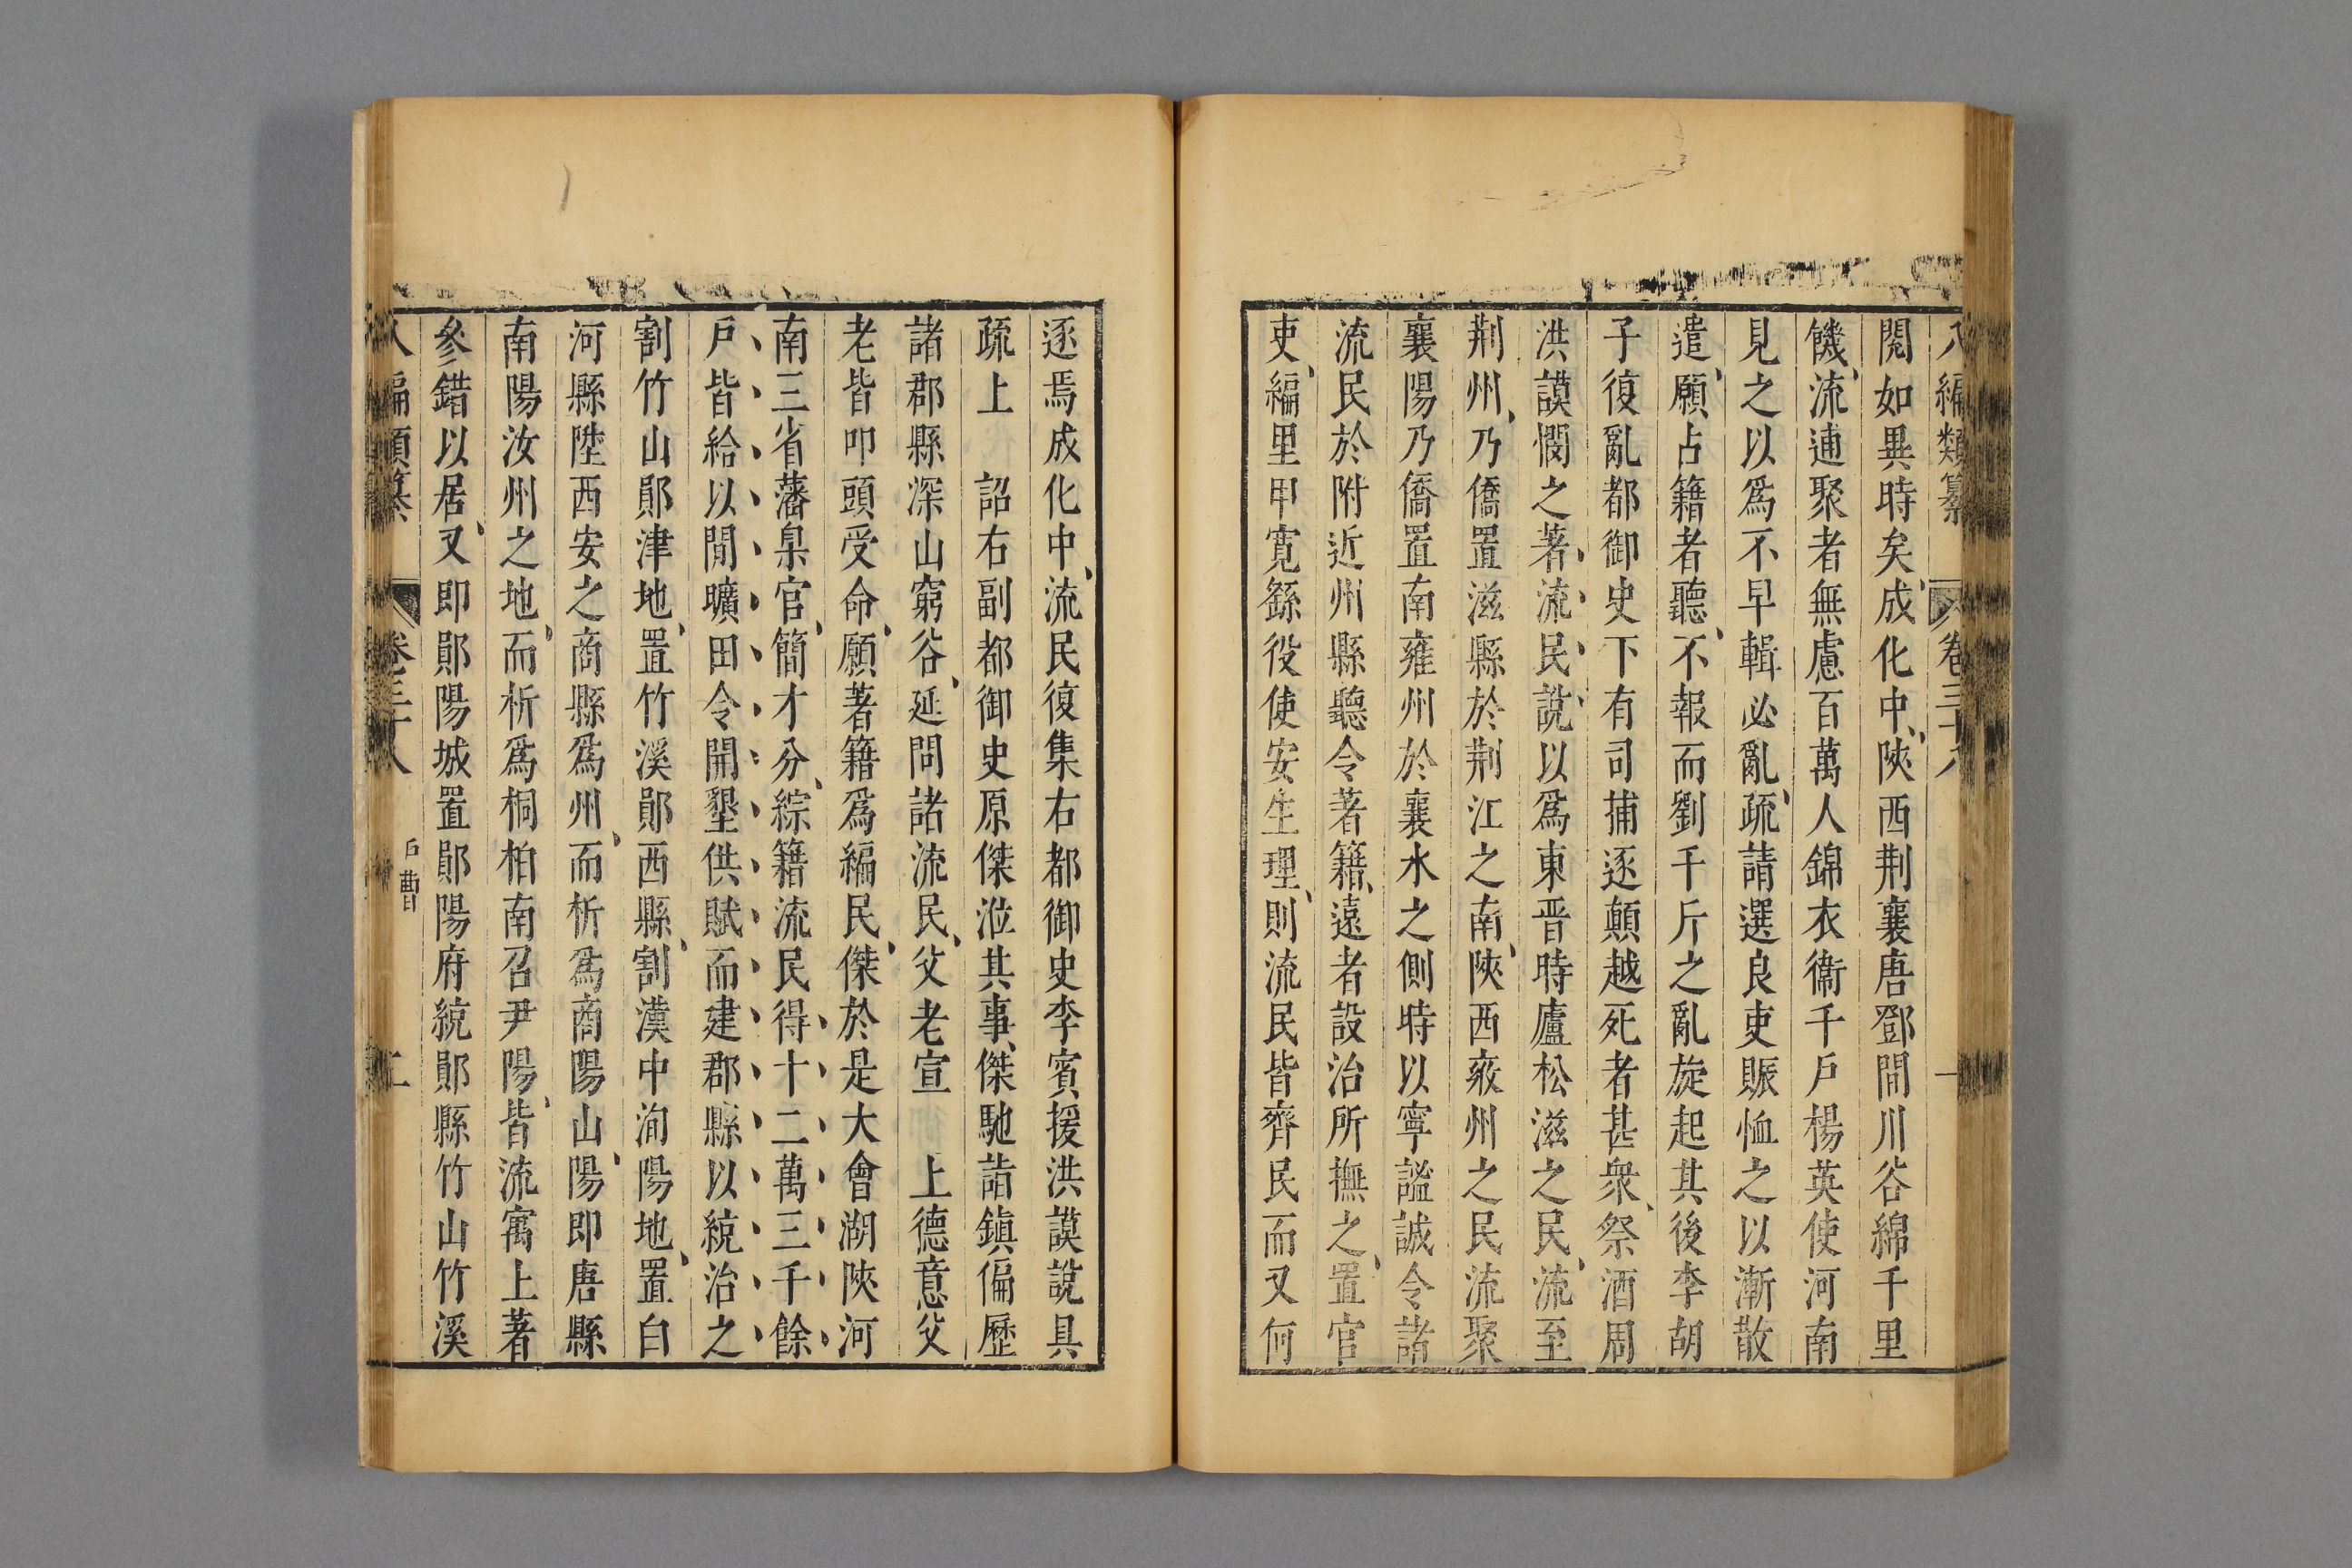 八編類纂 卷三十八 一
閱如異時矣成化中陝西荆襄唐鄧間川谷綿千里
饑流逋聚者無慮百萬人錦衣衞千戶楊英使河南
見之以爲不早輯必亂疏請選良吏賑恤之以漸散
遣願占籍者聽不報而劉千斤之亂旋起其後李胡
子復亂都御史下有司捕逐顛越死者甚衆祭酒周
洪謨憫之著流民說以爲東晋時廬松滋之民流至
荆州乃僑置滋縣於荆江之南陝西雍州之民流聚
襄陽乃僑置南雍州於襄水之側時以寧謐誠令諸
流民於附近州縣聽令著籍遠者設治所撫之置官
吏編里甲寬繇役使安生理則流民皆齊民而又何
逐焉成化中流民復集右都御史李賓援洪謨說具
疏上 詔右副都御史原傑涖其事傑馳詣鎭徧歷
諸郡縣深山窮谷延問諸流民父老宣 上德意父
老皆叩頭受命願著籍爲編民傑於是大會湖陝河
南三省藩臬官簡才分綜籍流民得十二萬三千餘
戶皆給以閒曠田令開墾供賦而建郡縣以統治之
割竹山鄖津地置竹溪鄖西縣割漢中洵陽地置白
河縣陞西安之商縣爲州而析爲商陽山陽即唐縣
南陽汝州之地而析爲桐柏南召尹陽皆流寓土著
參錯以居又即鄖陽城置鄖陽府統鄖縣竹山竹溪
八編類纂 卷三十八 戶曹 二